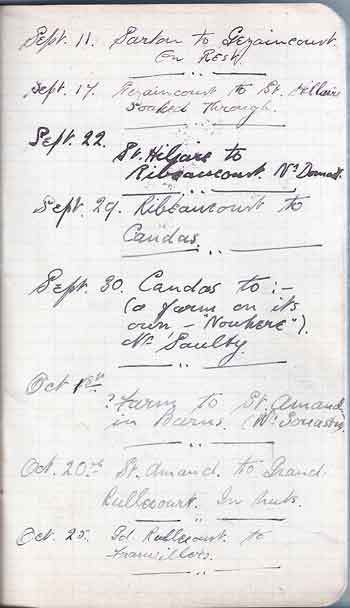 Sept. 11. Sarton to Gezaincourt.
En Rest.
Sept. 17. Gezaincourt to St. Hillaire
soaked through.
Sept. 22.
St. Hilaire to
Ribeaucourt. Nr Domart.
Sept. 29. Ribeaucourt to
Candas.
Sept. 30. Candas to :-
(a farm on its
own - "Nowhere").
Nr. Saulty.
Oct 1st
? Farm to St. Amand
in Barns. (Nr. Souastre)
Oct. 20th St. Amand. to Grand.
Rullecourt. In huts.
Oct. 25. Gd. Rullecourt. to
Franvillers.